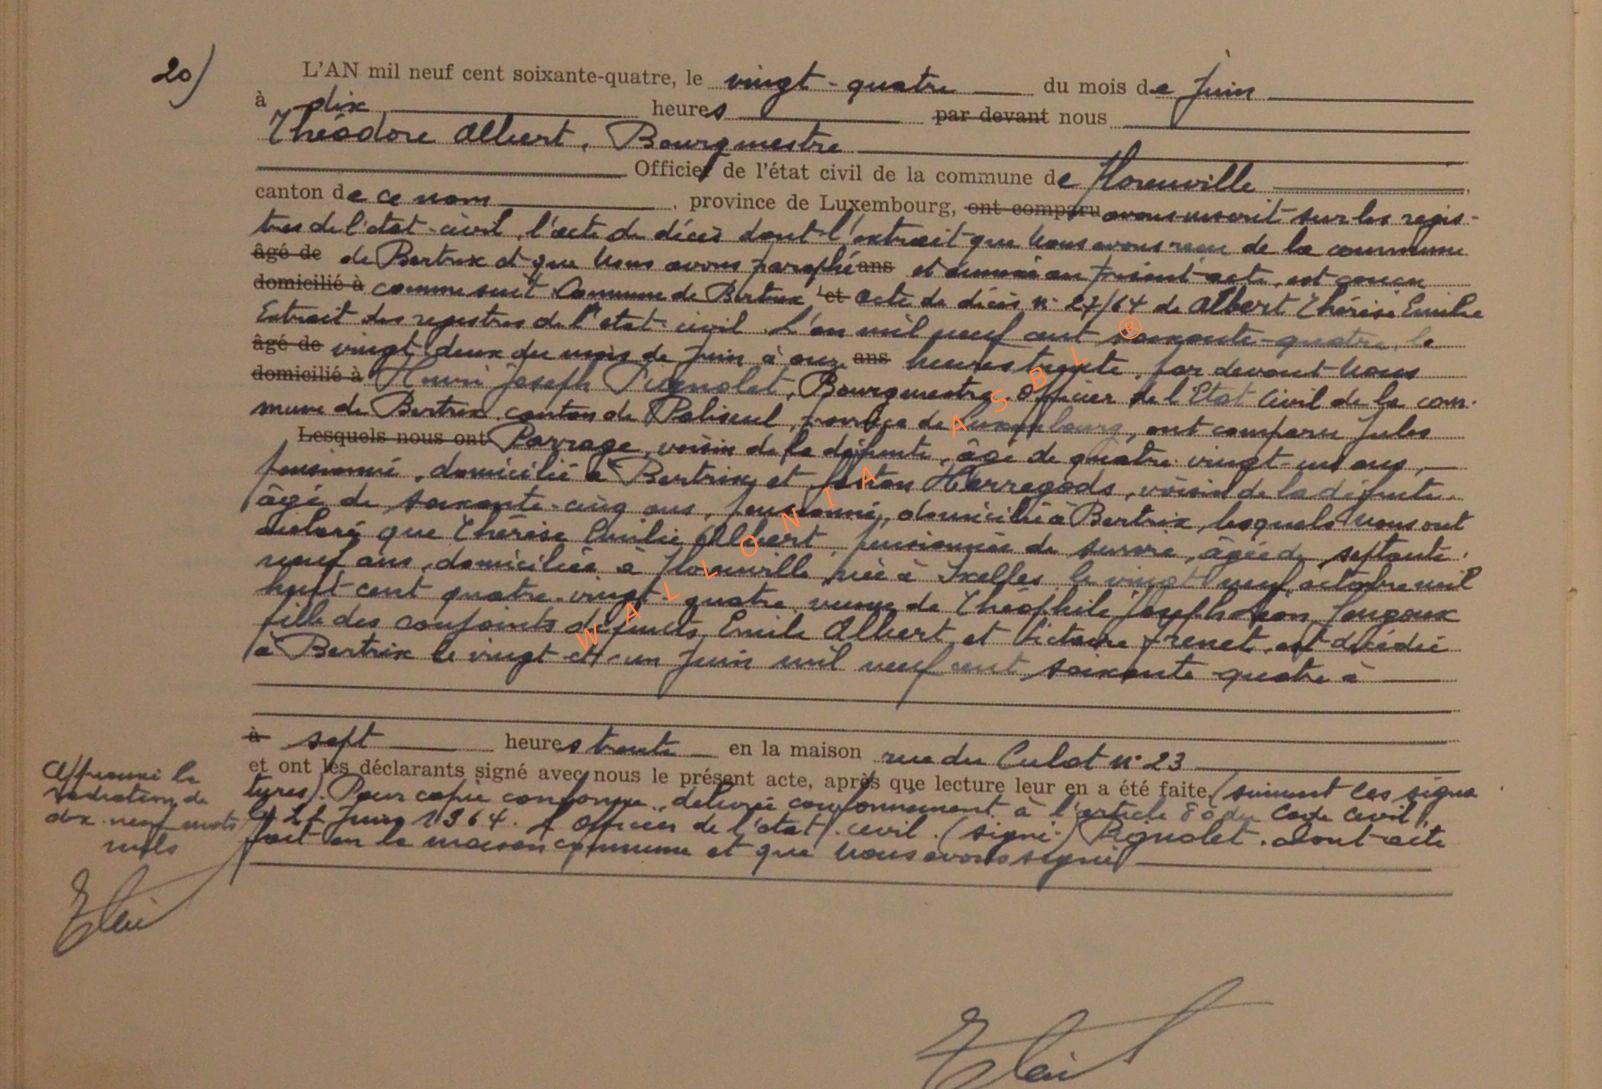 20)
L'AN mil neuf cent soixante-quatre, le vingt-quatre du mois de Juin
à dix heures par devant nous
Théodore Albert, Bourgmestre
Officier de l'état civil de la commune de Florenville
canton de ce nom, province de Luxembourg, ont comparu avons inscrit sur les regis-
tres de l'état-civil, l'acte de décès dont l'extrait que nous avons reçu de la commune
âgé de de Bertrix et que nous avons paraphé ans et annexé au présent acte, est conçu
domicilié à comme suit Commune de Bertrix et acte de décès n° 27/64 de Albert Thérèse Emilie
Extrait des registres de l'état-civil. L'an mil neuf cent soixante-quatre, le
âgé de vingt-deux du mois de Juin à onze ans heures trente, par devant nous
domicilié à Henri Joseph Pignolet, Bourgmestre Officier de l'Etat Civil de la com-
mune de Bertrix canton de Paliseul, province de Luxembourg, ont comparu Jules
Lesquels nous ont voisin de la défunte, âgé de quatre-vingt-un ans,
pensionné, domicilié à Bertrix et Herregods, voisin de la défunte,
âgé de soixante-cinq ans, pensionné, domicilié à Bertrix, lesquels nous ont
déclaré que Thérèse Emilie Albert, pensionnée de survie, âgée de septante-
neuf ans, domiciliée à Florenville, née à Ixelles le vingt-neuf octobre mil
huit cent quatre-vingt-quatre, veuve de Théophile Joseph
fille des conjoints défunts, Emile Albert et Victoire Frenet, est décédée
à Bertrix le vingt-et-un Juin mil neuf cent soixante quatre à
à sept heures trente en la maison rue du Culot n° 23
et ont les déclarants signé avec nous le présent acte, après que lecture leur en a été faite, (suivent les signa
tures). Pour copie conforme, délivrée conformément à l'article 80 du Code civil,
le 24 Juin 1964. L'Officier de l'état-civil. (signé) Pignolet. dont acte
fait en la maison commune et que nous avons signé
Approuvé la
radiation de
dix-neuf mots
nuls
WALLONIA ASBL ®